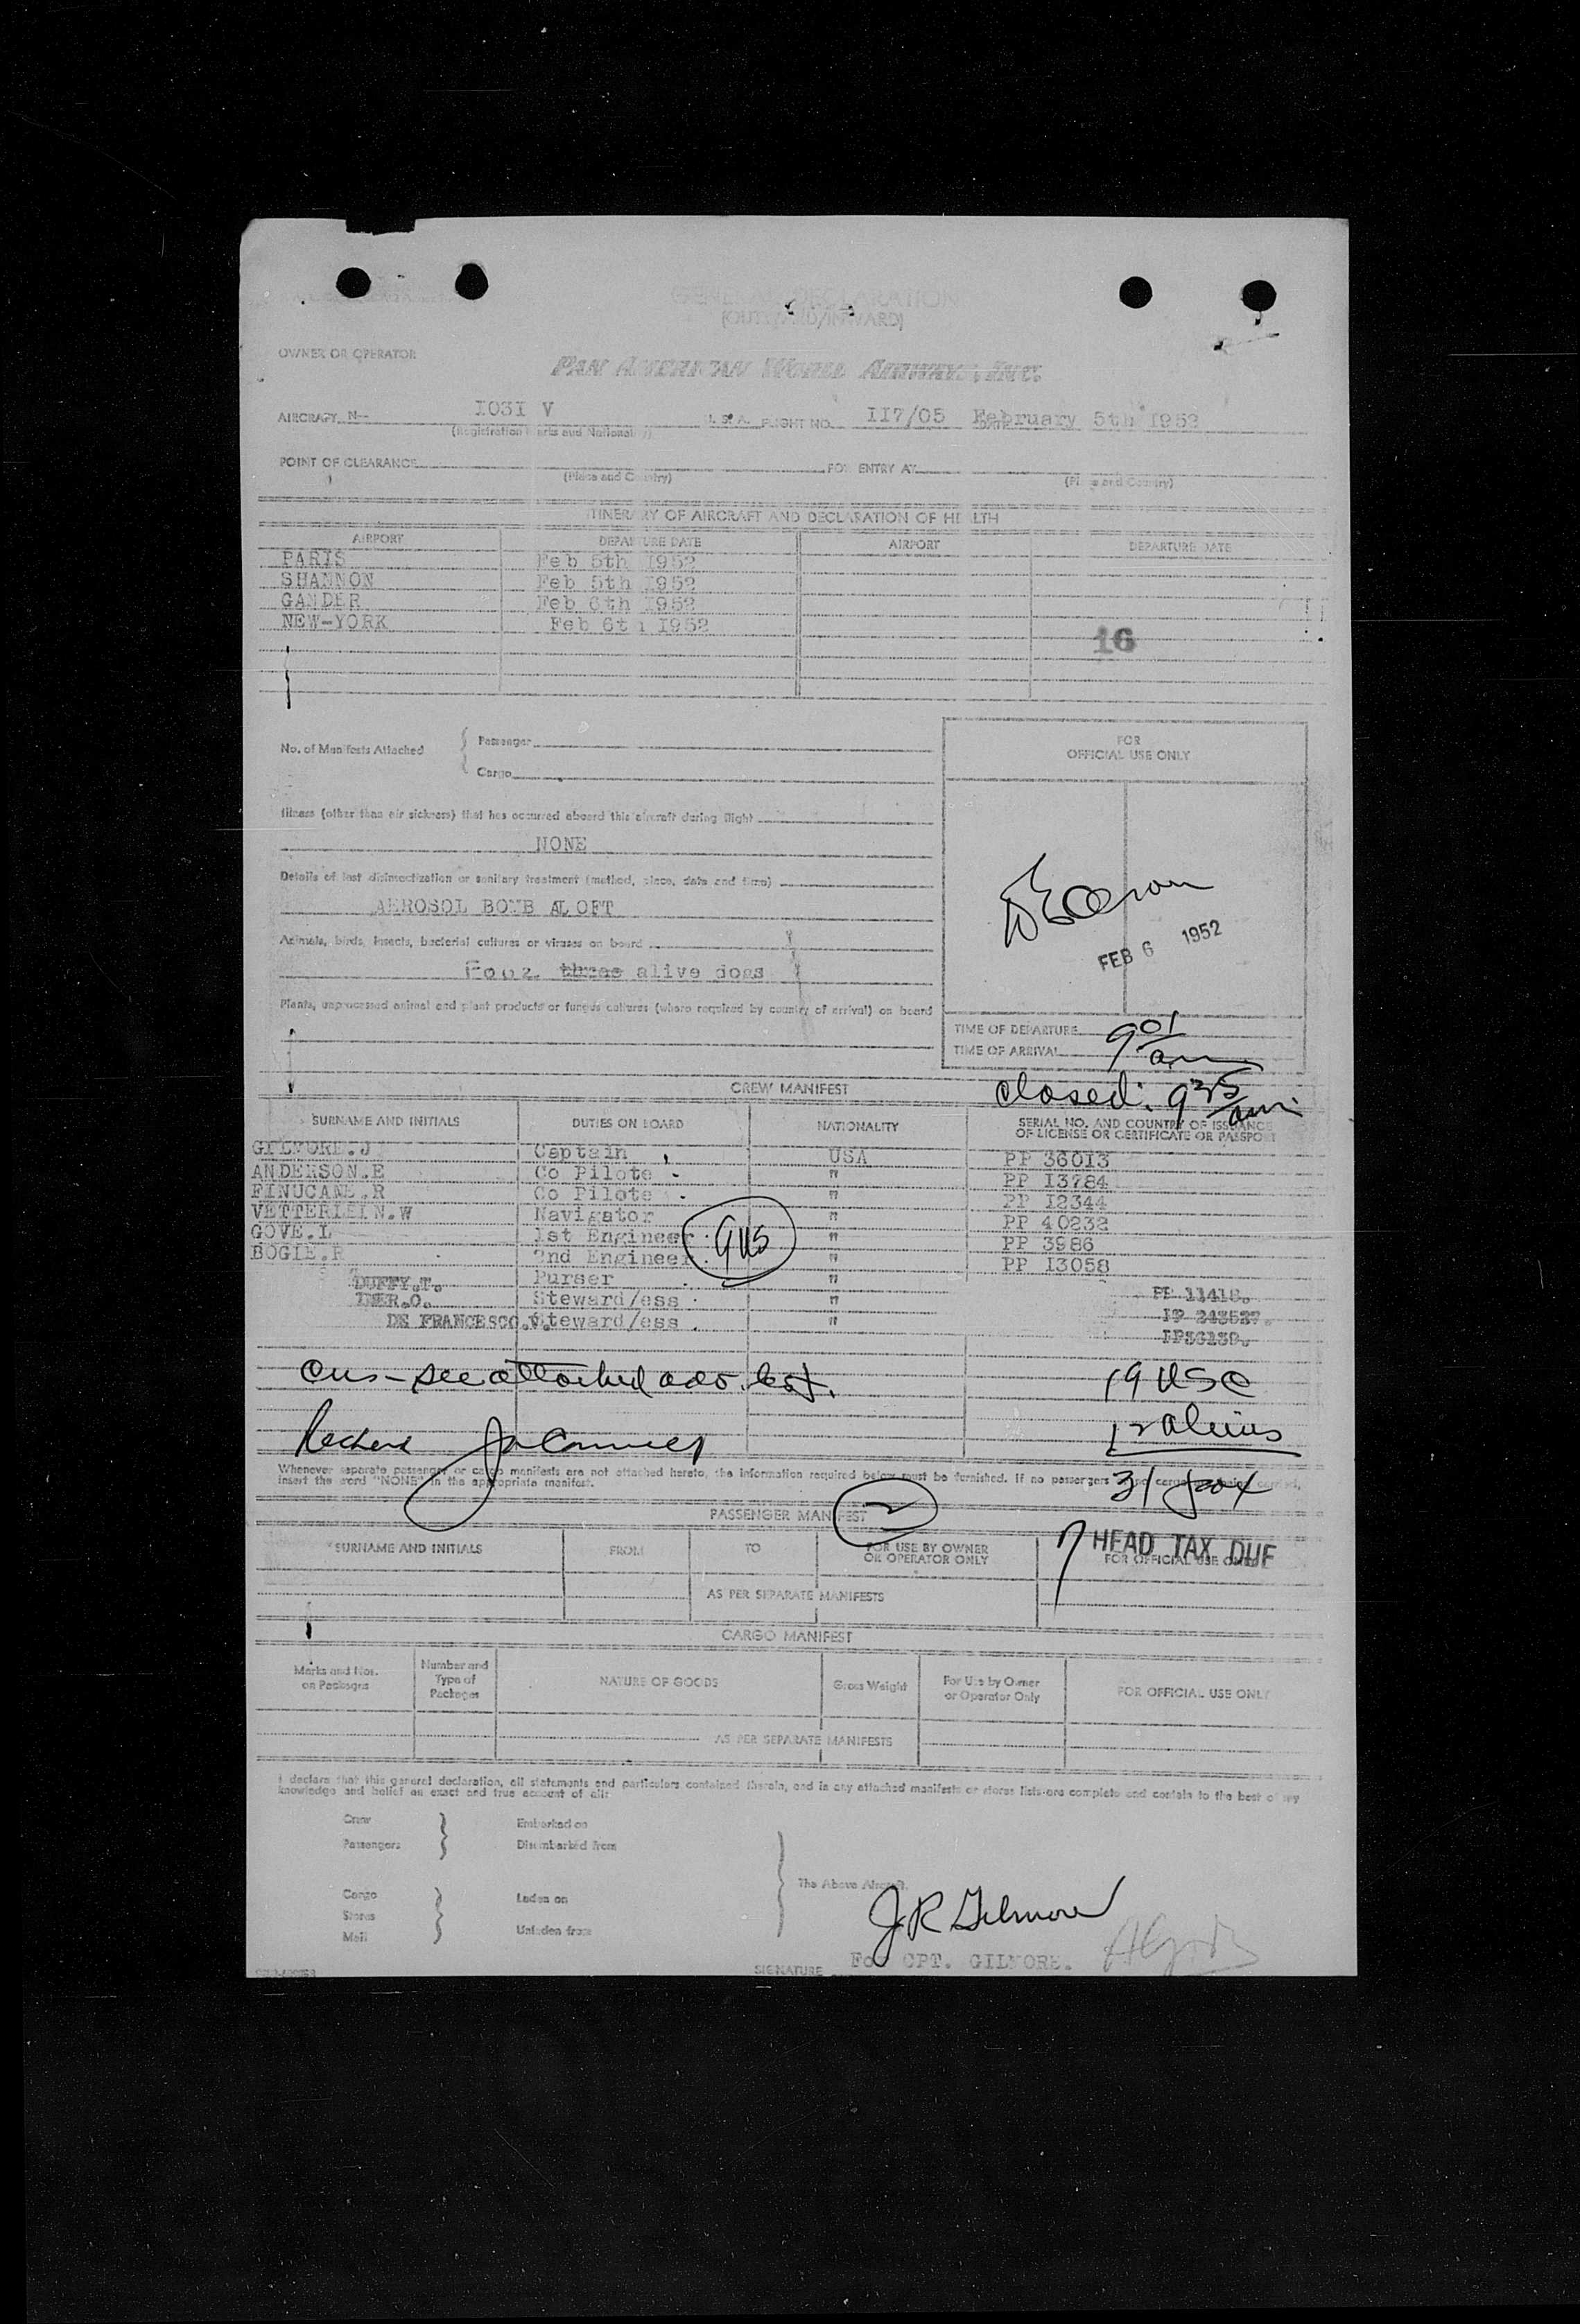 GENERAL DECLARATION
(OUTWARD/INWARD)
OWNER OR OPERATOR
PAN AMERICAN WORLD AIRWAYS, INC.
AIRCRAFT N-- 1031 V U. S. A. FLIGHT NO. 117/05 February 5th 1952
(Registration Marks and Nationality)
POINT OF CLEARANCE FOR ENTRY AT
(Place and Country) (Place and Country)
ITINERARY OF AIRCRAFT AND DECLARATION OF HEALTH
AIRPORT DEPARTURE DATE AIRPORT DEPARTURE DATE
PARIS Feb 5th 1952
SHANNON Feb 5th 1952
GANDER Feb 6th 1952
NEW-YORK Feb 6th 1952
16
No. of Manifests Attached Passenger
Cargo
FOR
OFFICIAL USE ONLY
Illness (other than air sickness) that has occurred aboard this aircraft during flight
NONE
Details of last disinsectization or sanitary treatment (method, place, date and time)
AEROSOL BOMB ALOFT
Animals, birds, insects, bacterial cultures or viruses on board
Four three alive dogs
FEB 6 1952
Plants, unprocessed animal and plant products or fungus cultures (where required by country of arrival) on board
TIME OF DEPARTURE 9 01
TIME OF ARRIVAL am
CREW MANIFEST closed: 9 35 am
SURNAME AND INITIALS DUTIES ON BOARD NATIONALITY SERIAL NO. AND COUNTRY OF ISSUANCE
OF LICENSE OR CERTIFICATE OR PASSPORT
GILMORE.J Captain USA PP 36013
ANDERSON.E Co Pilote " PP 13784
FINUCANE.R Co Pilote " PP 12344
VETTERLEIN.W Navigator " PP 40232
GOVE.L 1st Engineer " PP 3986
BOGIE.R 2nd Engineer " PP 13058
9 US
DUFFY.T. Purser " PP 11418.
Steward/ess "
DE FRANCESCO.V. Steward/ess "
see attached 19 USC
12 aliens
31
Whenever separate passenger or cargo manifests are not attached hereto, the information required below must be furnished. If no passengers
insert the word "NONE" in the appropriate manifest.
PASSENGER MANIFEST
HEAD TAX DUE
SURNAME AND INITIALS FROM TO FOR USE BY OWNER
OR OPERATOR ONLY FOR OFFICIAL USE ONLY
AS PER SEPARATE MANIFESTS
CARGO MANIFEST
Marks and Nos.
on Packages Number and
Type of
Packages NATURE OF GOODS Gross Weight For Use by Owner
or Operator Only FOR OFFICIAL USE ONLY
AS PER SEPARATE MANIFESTS
I declare that this general declaration, all statements and particulars contained therein, and in any attached manifests or stores lists are complete and contain to the best of my
knowledge and belief an exact and true account of all:
Crew Embarked on
Passengers Disembarked from
The Above Aircraft.
Cargo Laden on
Stores
Mail Unladen from
J R Gilmore
SIGNATURE For CPT. GILMORE.